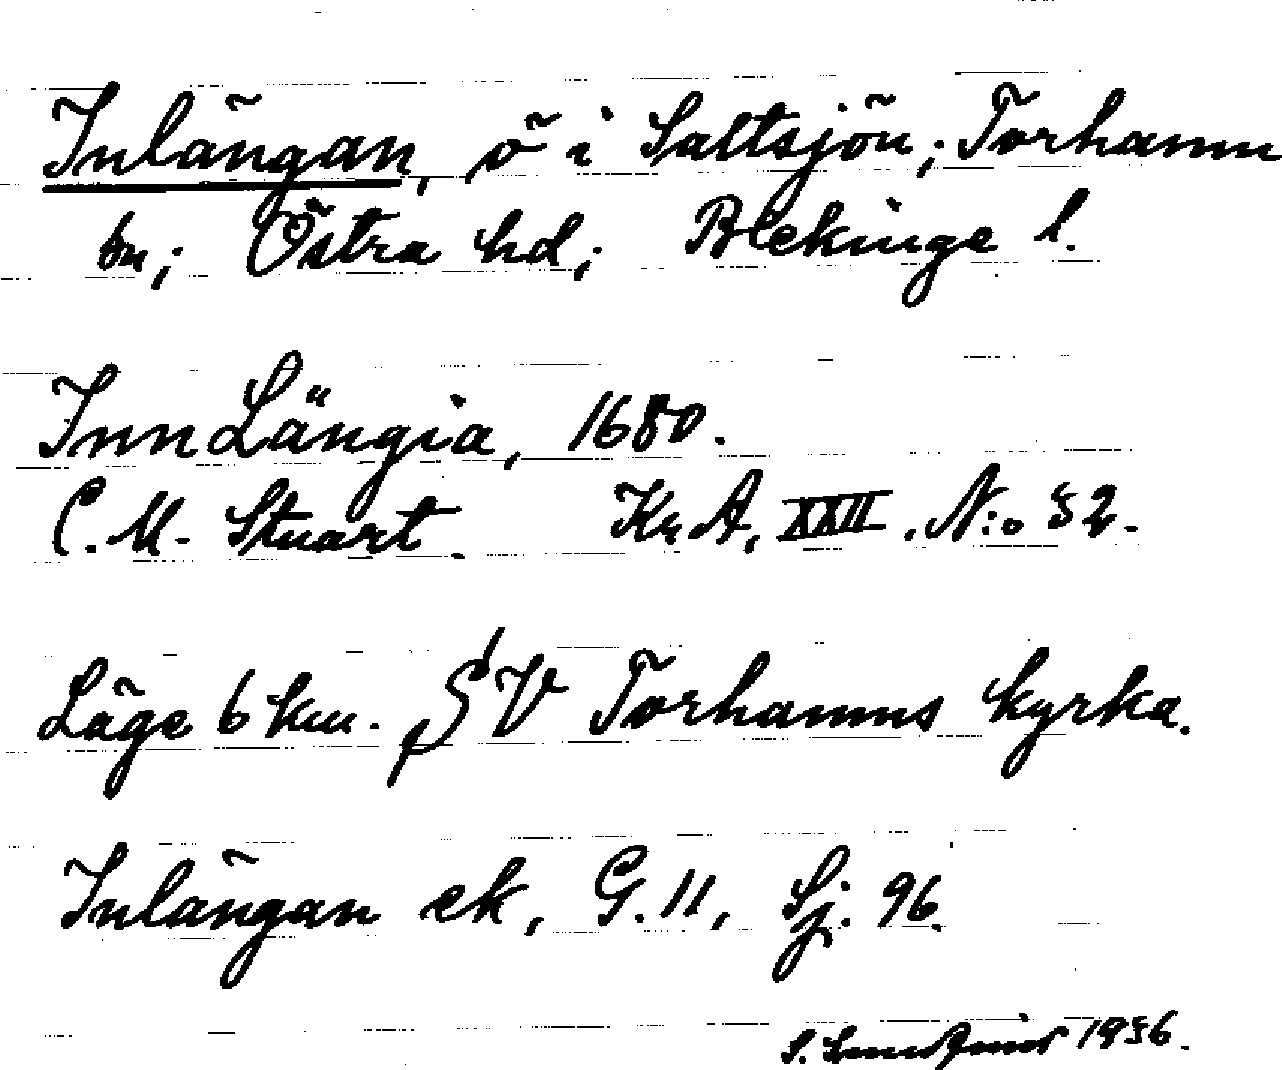 Inlängan, ö i Saltsjön; Torhamn
sn; Östra hd; Blekinge l.
Inn Längia, 1680.
C. M. Stuart. Kr A, XXII. N:o 32.
Läge 6 km. SV Torhamns kyrka.
Inlängan ek, G. 11, Sj. 96.
S. 1936.